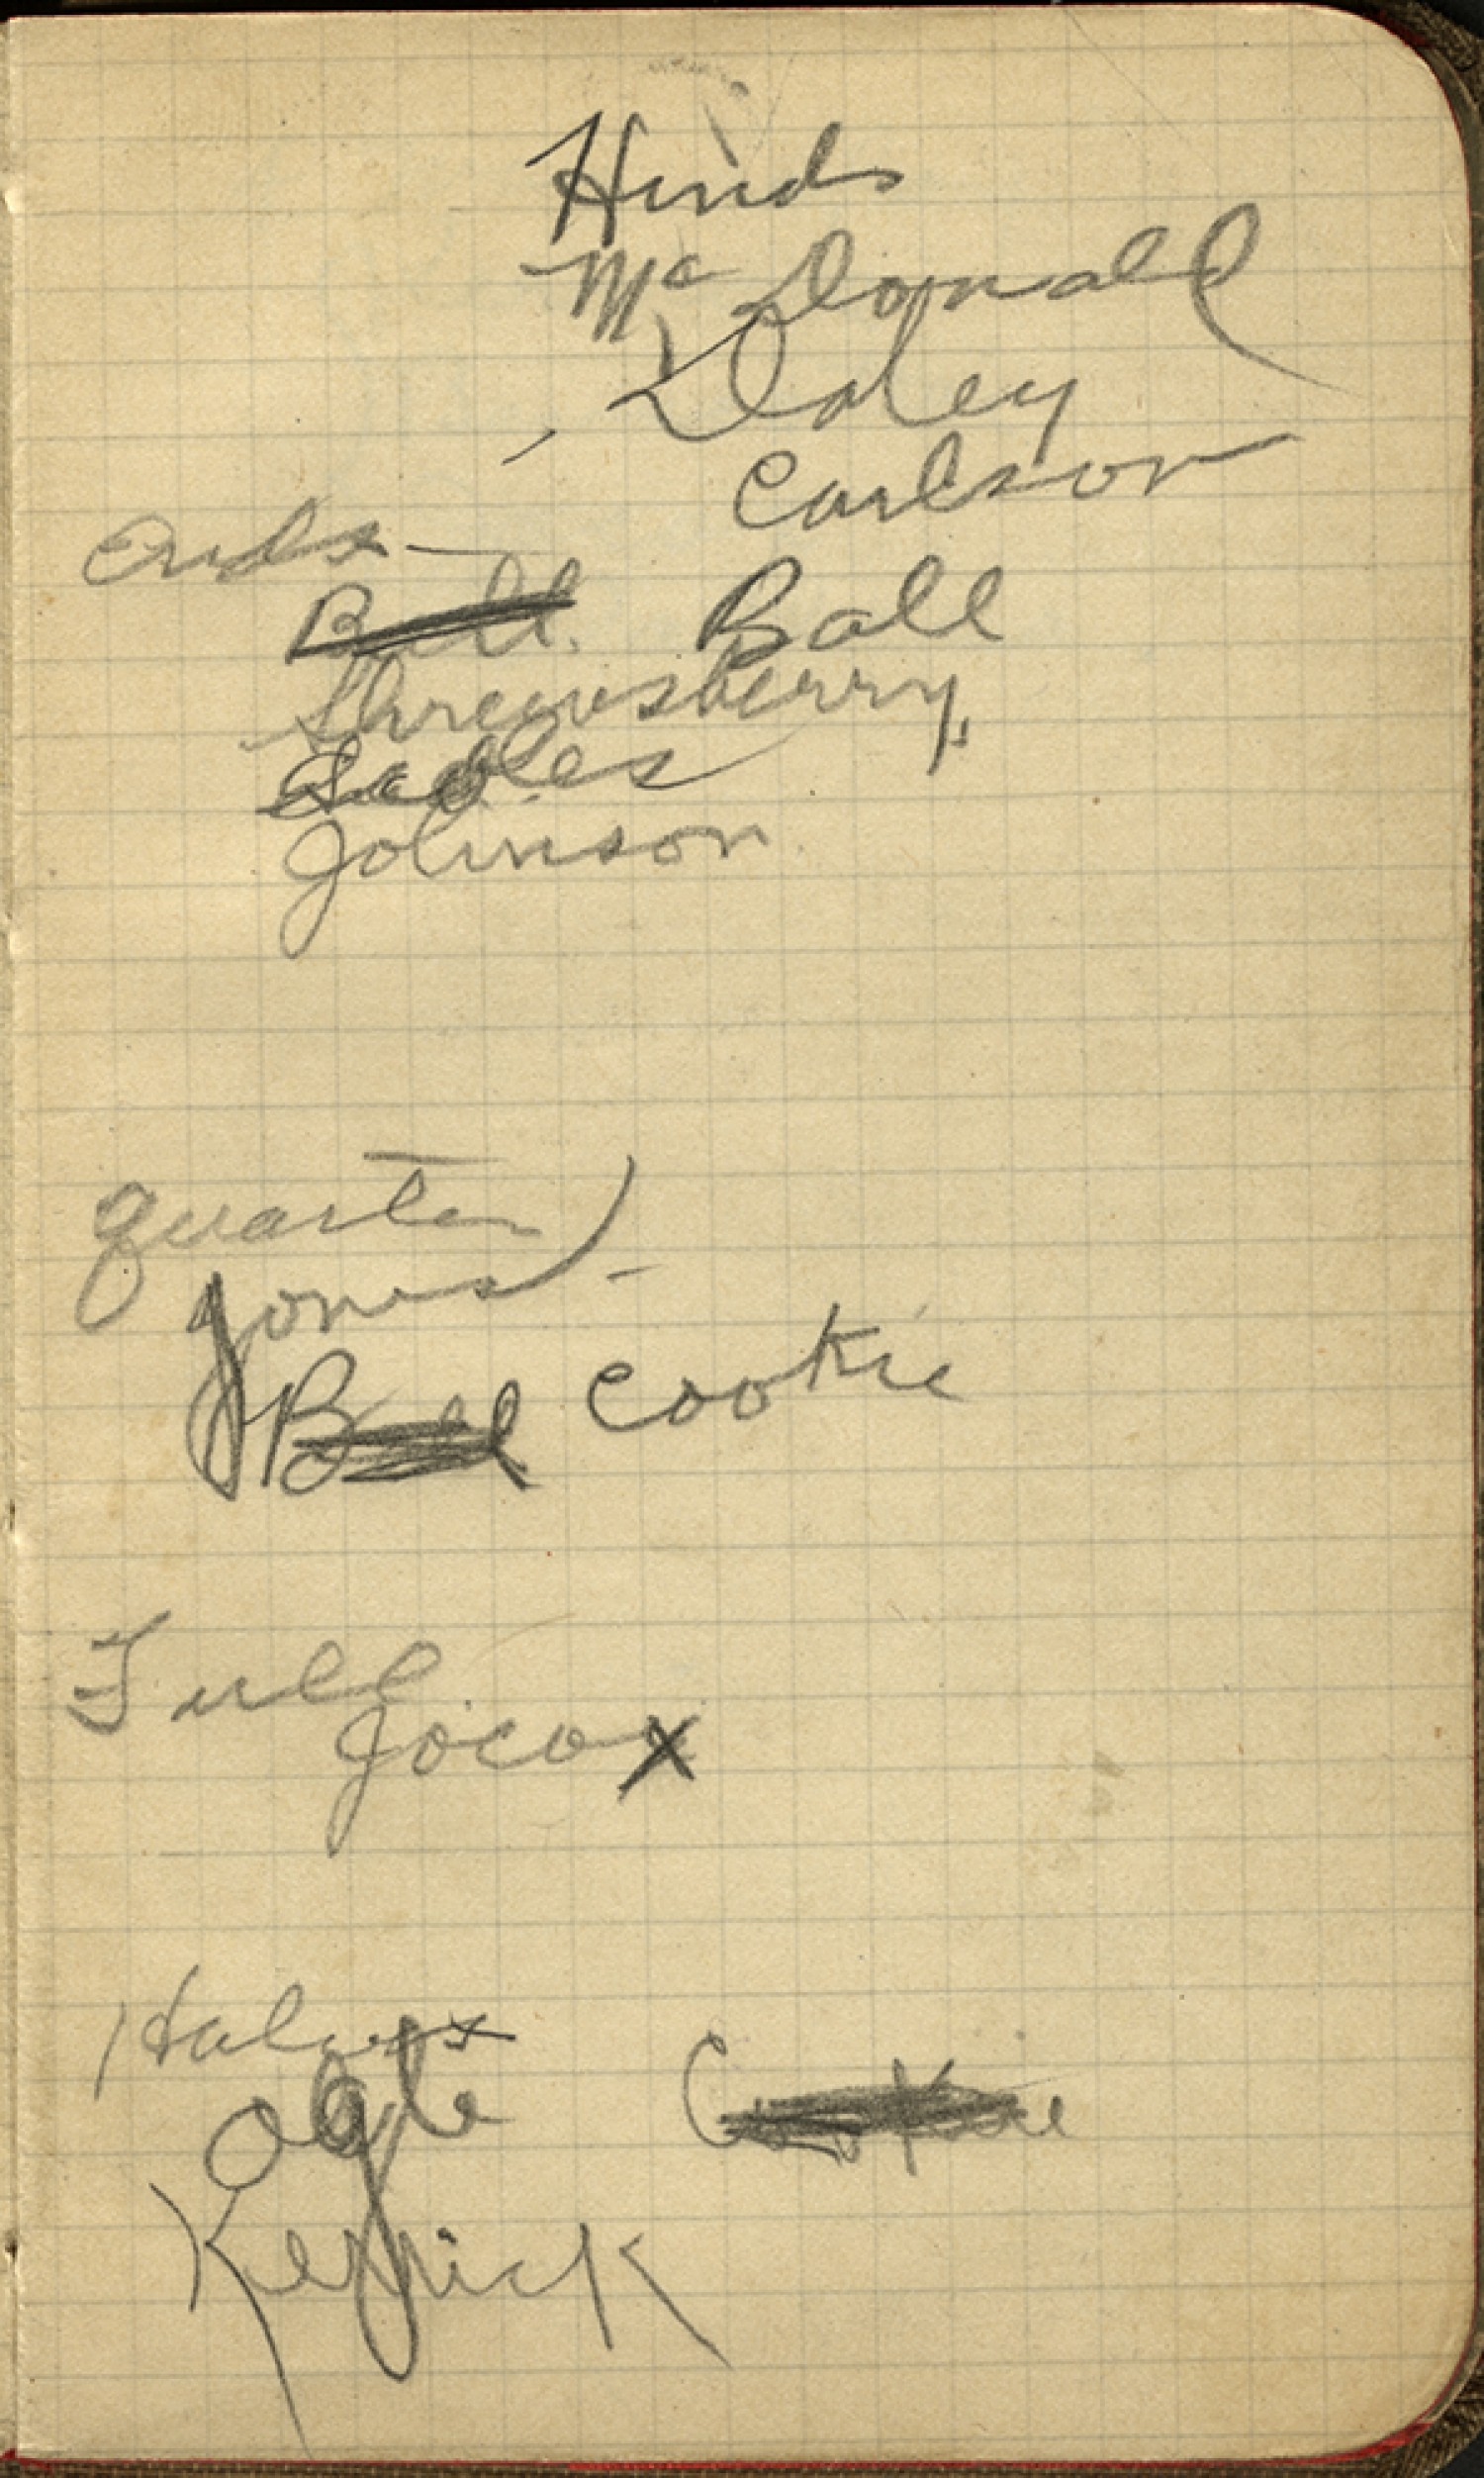 Hinds
Mc Donald
Daley
Carlson
Ends —
Ball Ball
Shrewsberry
Johnson
quarter
Jones -
Ball Cookie
Full
Jocox
Halves
Ogle Cookie
Kerrick